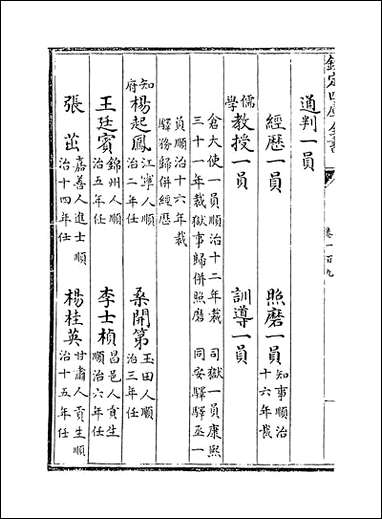 欽定四庫全書
卷一百九
通判一員
經歷一員 照磨一員 知事順治十六年裁
儒學教授一員 訓導一員
倉大使一員順治十二年裁 司獄一員康熙
三十一年裁獄事歸併照磨 同安驛驛丞一
員順治十六年裁
驛務歸併經歷
知府楊起鳳 江寧人順治二年任 桑開第 玉田人順治三年任
王廷賓 錦州人順治五年任 李士楨 昌邑人貢生順治六年任
張茁 嘉善人進士順治十四年任 楊桂英 甘肅人貢生順治十五年任